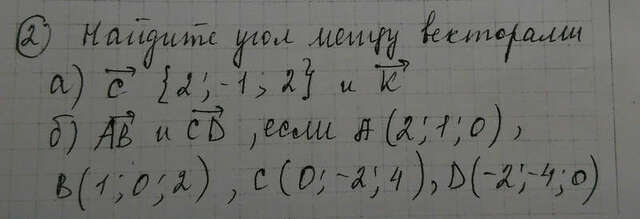 ② Найдите угол между векторами
а) c⃗ {2;-1;2} и k⃗
б) AB⃗ и CD⃗, если A(2;1;0),
B(1;0;2), C(0;-2;4), D(-2;-4;0)